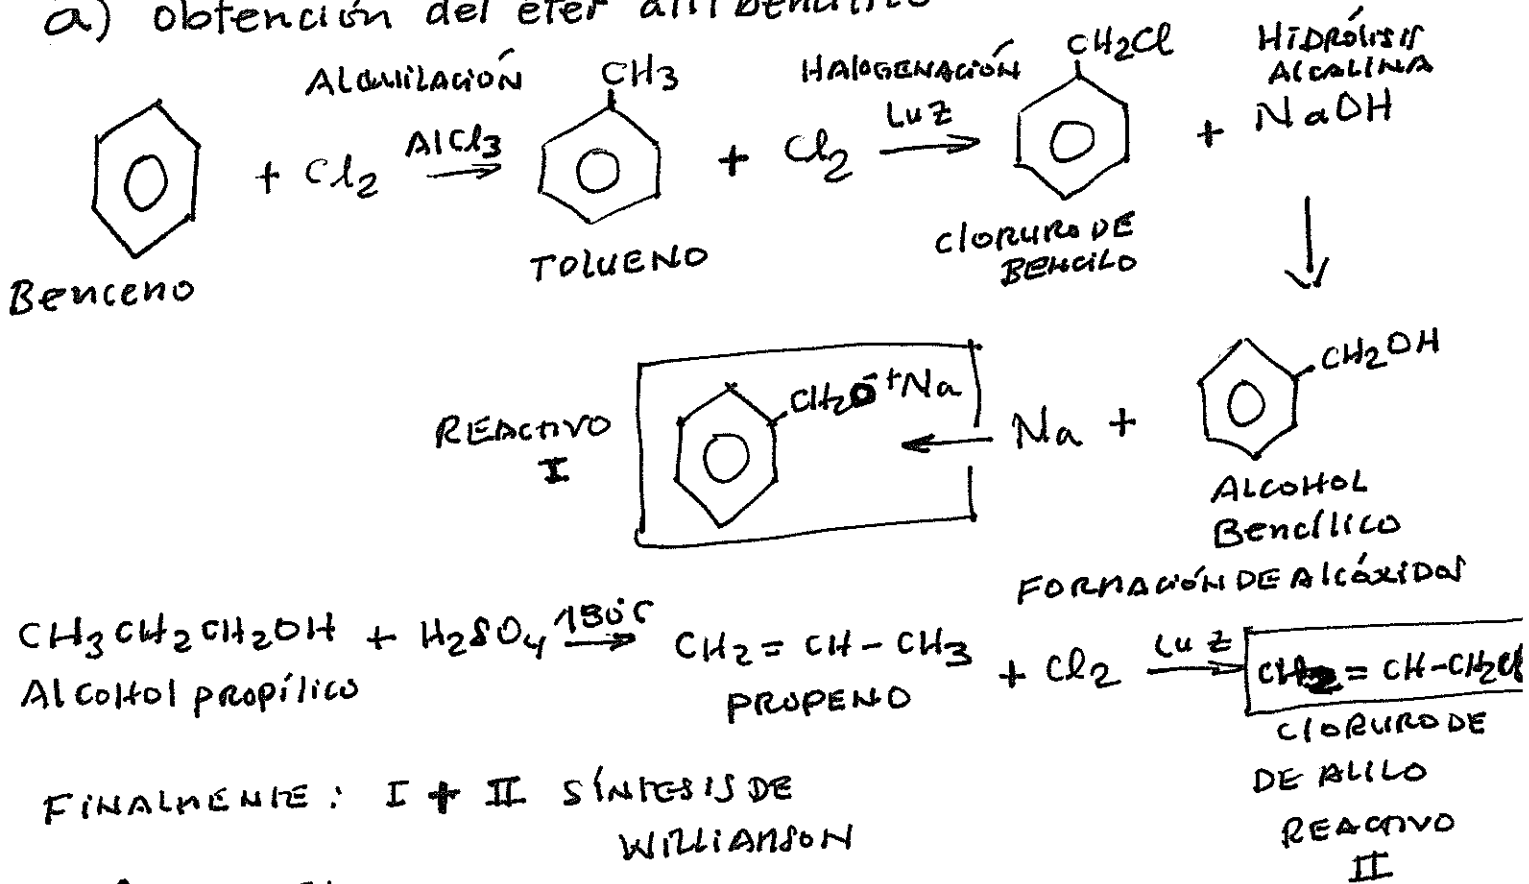 a) Obtención del éter alilbencílico
ALQUILACIÓN CH3 HALOGENACIÓN CH2Cl HIDRÓLISIS ALCALINA
+ Cl2 AlCl3 → + Cl2 LUZ → + NaOH
Benceno TOLUENO CLORURO DE BENCILO
REACTIVO I CH2O- +Na ← Na + CH2OH
ALCOHOL
Bencílico
FORMACIÓN DE Alcóxidos
CH3CH2CH2OH + H2SO4 180°C → CH2 = CH - CH3 + Cl2 LUZ → CH2 = CH-CH2Cl
Alcohol propílico PROPENO CLORURO DE
DE ALILO
FINALMENTE: I + II SÍNTESIS DE
WILLIAMSON
REACTIVO
II